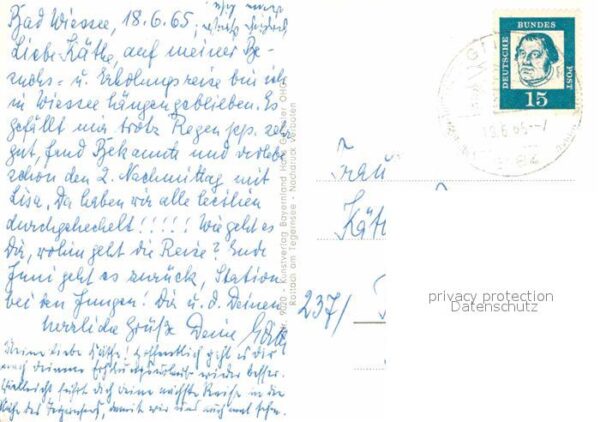 Bad Wiessee, 18.6.65,
Liebe Käthe, auf meiner Be-
suchs- u. Erholungsreise bin ich
in Wiessee hängengeblieben. Es
gefällt mir trotz Regen sehr
gut, fand Bekannte und verlebe
schon den 2. Nachmittag mit
Lisa. Da haben wir alle
durchgehechelt!!!!! Wie geht es
Dir, wohin geht die Reise? Ende
Juni geht es zurück, Station
bei den Jungen! Dir u. d. Deinen
herzliche Grüße Deine
Meine liebe Käthe! Hoffentlich geht es dir
nach deinem wieder besser.
Vielleicht führt dich deine nächste Reise in die
Nähe des Tegernsees, damit wir uns auch mal sehen.
9020 · Kunstverlag Bayernland Hans OHG
Rottach am Tegernsee · Nachdruck verboten
DEUTSCHE BUNDES POST
15
18.6.65
Frau
Käthe
237/
privacy protection
Datenschutz